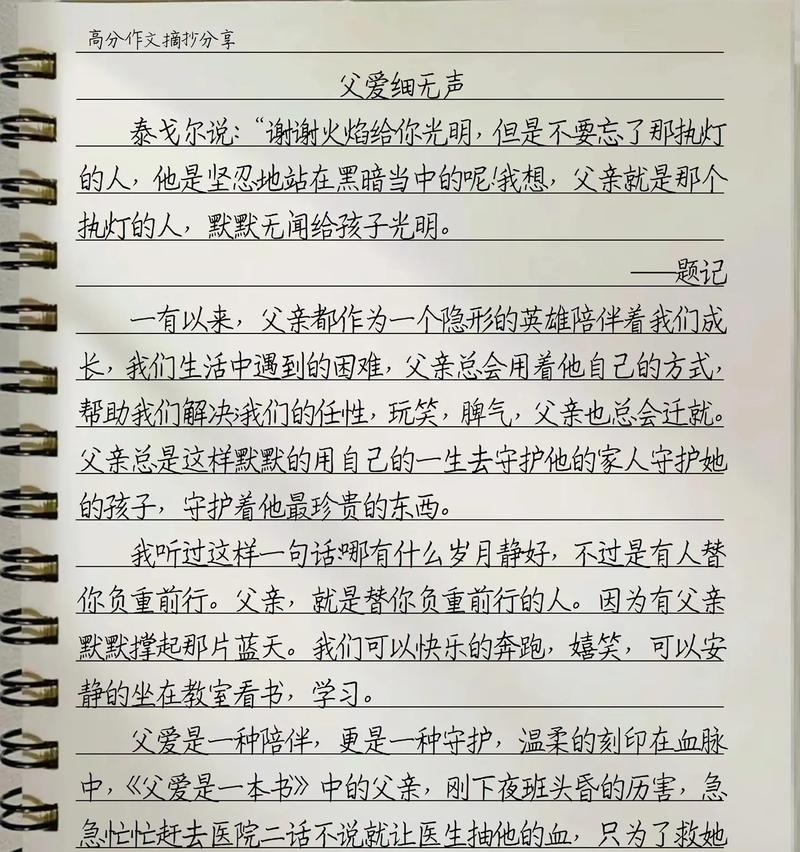 高分作文摘抄分享
父爱细无声
泰戈尔说：“谢谢火焰给你光明，但是不要忘了那执灯
的人，他是坚忍地站在黑暗当中的呢!我想，父亲就是那个
执灯的人，默默无闻给孩子光明。
——题记
一有以来，父亲都作为一个隐形的英雄陪伴着我们成
长，我们生活中遇到的困难，父亲总会用着他自己的方式，
帮助我们解决;我们的任性，玩笑，脾气，父亲也总会迁就。
父亲总是这样默默的用自己的一生去守护他的家人守护她
的孩子，守护着他最珍贵的东西。
我听过这样一句话:哪有什么岁月静好，不过是有人替
你负重前行。父亲，就是替你负重前行的人。因为有父亲
默默撑起那片蓝天。我们可以快乐的奔跑，嬉笑，可以安
静的坐在教室看书，学习。
父爱是一种陪伴，更是一种守护，温柔的刻印在血脉
中，《父爱是一本书》中的父亲，刚下夜班头昏的厉害，急
急忙忙赶去医院二话不说就让医生抽他的血，只为了救她